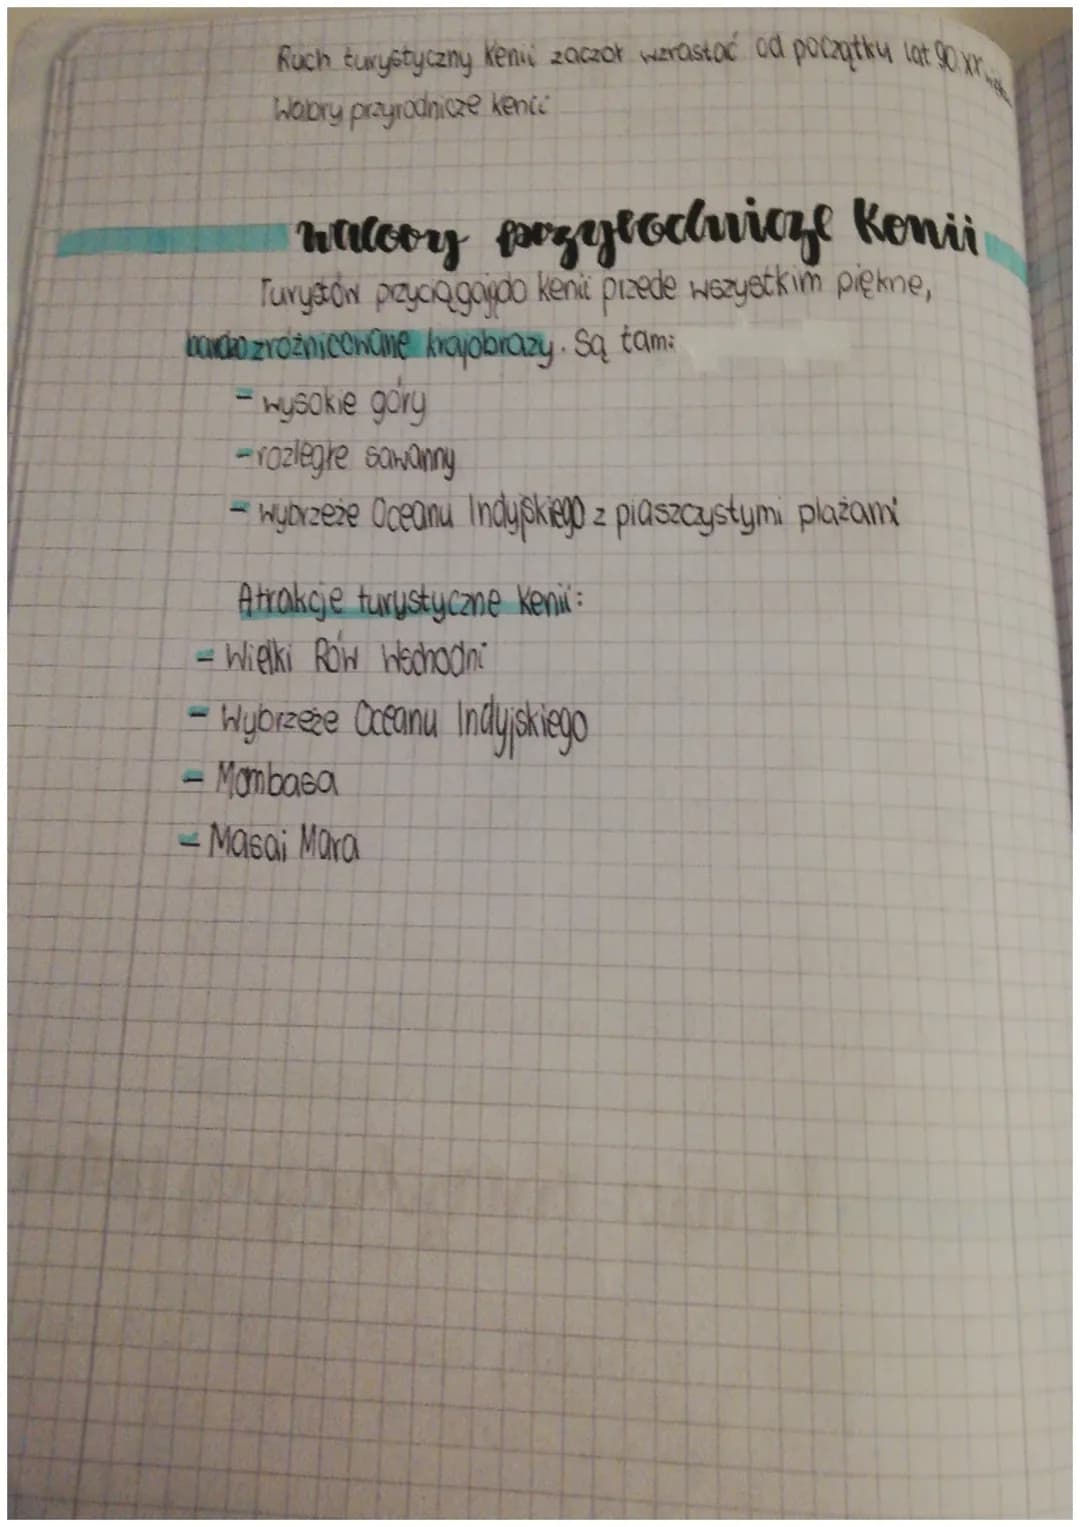 Ruch turystyczny Kenii zaczął wzrastać od początku lat 90. XX wieku
Walory przyrodnicze Kenii
walory przyrodnicze Kenii
Turystów przyciągają do Kenii przede wszystkim piękne,
bardzo zróżnicowane krajobrazy. Są tam:
- wysokie góry
- rozległe sawanny
- wybrzeże Oceanu Indyjskiego z piaszczystymi plażami
Atrakcje turystyczne Kenii:
- Wielki Rów Wschodni
- Wybrzeże Oceanu Indyjskiego
- Mombasa
- Masai Mara